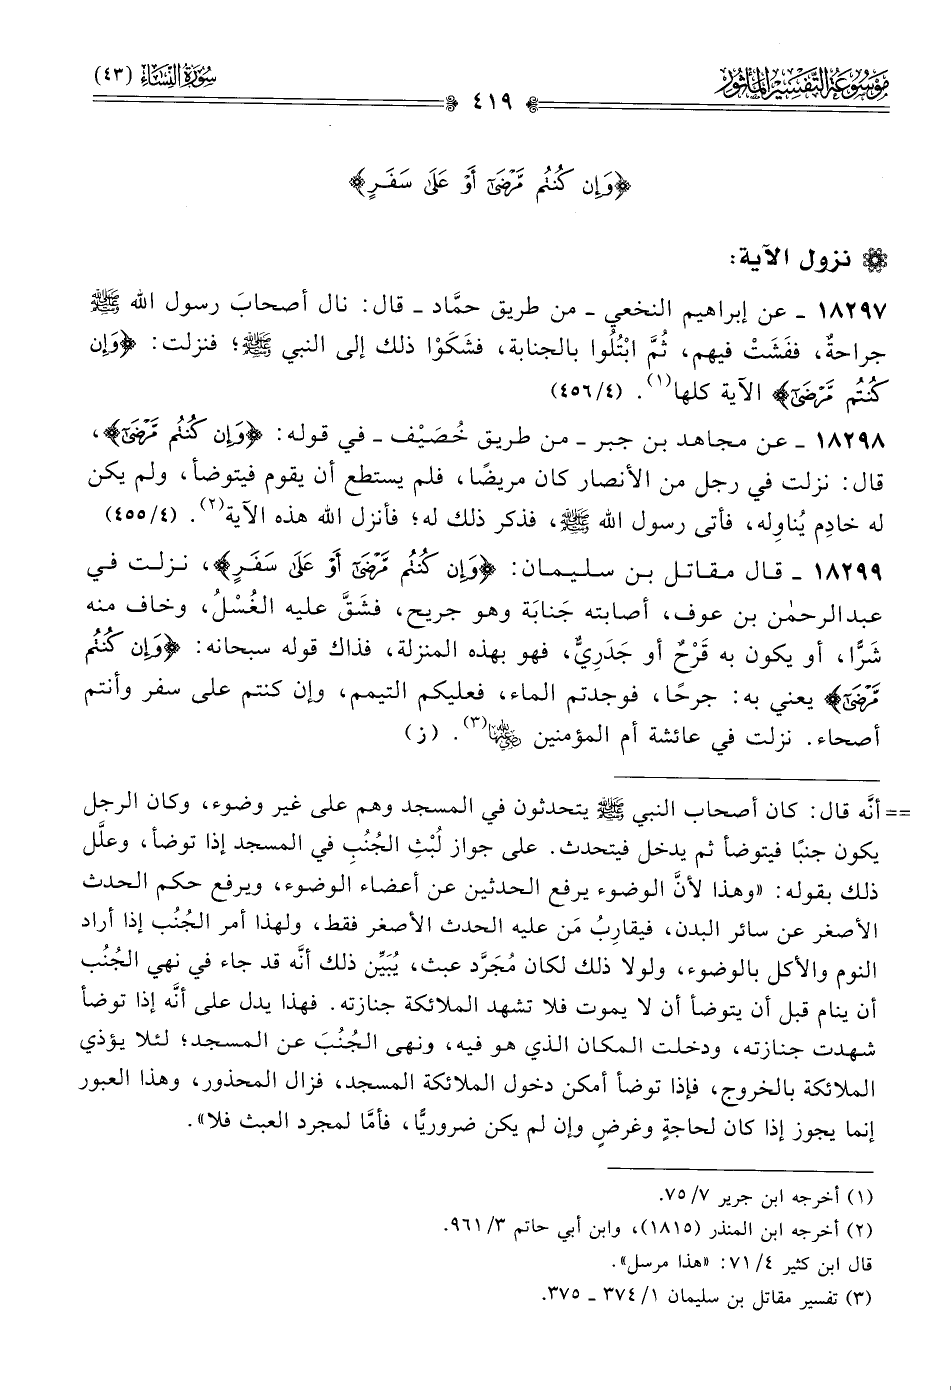 موسوعة التفسير المأثور
سورة النساء (٤٣)
٤١٩
﴿وَإِن كُنتُم مَّرْضَىٰٓ أَوْ عَلَىٰ سَفَرٍ﴾
نزول الآية:
١٨٢٩٧ ـ عن إبراهيم النخعي ـ من طريق حمَّاد ـ قال: نال أصحابَ رسول الله ﷺ
جراحةٌ، ففَشَتْ فيهم، ثُمَّ ابْتُلُوا بالجنابة، فشَكَوْا ذلك إلى النبي ﷺ؛ فنزلت: ﴿وَإِن
كُنتُم مَّرْضَىٰٓ﴾ الآية كلها(١). (٤٥٦/٤)
١٨٢٩٨ ـ عن مجاهد بن جبر ـ من طريق خُصَيْف ـ في قوله: ﴿وَإِن كُنتُم مَّرْضَىٰٓ﴾،
قال: نزلت في رجل من الأنصار كان مريضًا، فلم يستطع أن يقوم فيتوضأ، ولم يكن
له خادِم يُناوِله، فأتى رسول الله ﷺ، فذكر ذلك له؛ فأنزل الله هذه الآية(٢). (٤٥٥/٤)
١٨٢٩٩ ـ قال مقاتل بن سليمان: ﴿وَإِن كُنتُم مَّرْضَىٰٓ أَوْ عَلَىٰ سَفَرٍ﴾، نزلت في
عبدالرحمٰن بن عوف، أصابته جَنابَة وهو جريح، فشَقَّ عليه الغُسْلُ، وخاف منه
شَرًّا، أو يكون به قَرْحٌ أو جَدَرِيٌّ، فهو بهذه المنزلة، فذاك قوله سبحانه: ﴿وَإِن كُنتُم
مَّرْضَىٰٓ﴾ يعني به: جرحًا، فوجدتم الماء، فعليكم التيمم، وإن كنتم على سفر وأنتم
أصحاء. نزلت في عائشة أم المؤمنين رضي الله عنها(٣). (ز)
== أنَّه قال: كان أصحاب النبي ﷺ يتحدثون في المسجد وهم على غير وضوء، وكان الرجل
يكون جنبًا فيتوضأ ثم يدخل فيتحدث. على جواز لُبْثِ الجُنُبِ في المسجد إذا توضأ، وعلَّل
ذلك بقوله: «وهذا لأنَّ الوضوء يرفع الحدثين عن أعضاء الوضوء، ويرفع حكم الحدث
الأصغر عن سائر البدن، فيقارِبُ مَن عليه الحدث الأصغر فقط، ولهذا أمر الجُنُب إذا أراد
النوم والأكل بالوضوء، ولولا ذلك لكان مُجَرَّد عبث، يُبَيِّن ذلك أنَّه قد جاء في نهي الجُنُب
أن ينام قبل أن يتوضأ أن لا يموت فلا تشهد الملائكة جنازته. فهذا يدل على أنَّه إذا توضأ
شهدت جنازته، ودخلت المكان الذي هو فيه، ونهى الجُنُبَ عن المسجد؛ لئلا يؤذي
الملائكة بالخروج، فإذا توضأ أمكن دخول الملائكة المسجد، فزال المحذور، وهذا العبور
إنما يجوز إذا كان لحاجةٍ وغرضٍ وإن لم يكن ضروريًّا، فأمَّا لمجرد العبث فلا».
(١) أخرجه ابن جرير ٧/ ٧٥.
(٢) أخرجه ابن المنذر (١٨١٥)، وابن أبي حاتم ٩٦١/٣.
قال ابن كثير ٤/ ٧١: «هذا مرسل».
(٣) تفسير مقاتل بن سليمان ١/ ٣٧٤ ـ ٣٧٥.